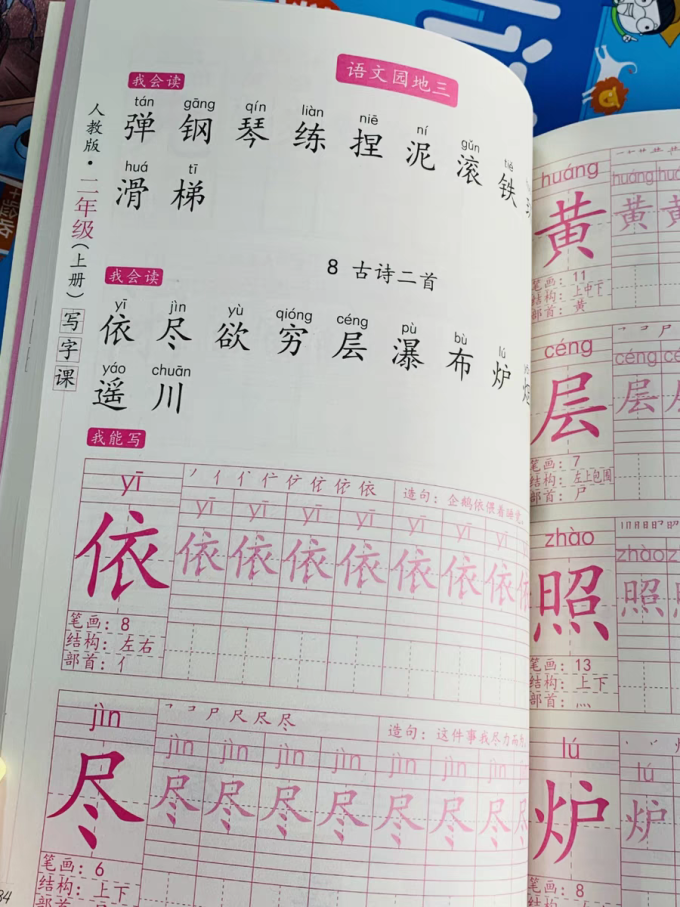 语文园地三
我会读
tán gāng qín liàn niē ní gǔn tiě
弹 钢 琴 练 捏 泥 滚 铁
huá tī
滑 梯
人教版·二年级(上册)写字课
8 古诗二首
我会读
yī jìn yù qióng céng pù bù lú
依 尽 欲 穷 层 瀑 布 炉
yáo chuān
遥 川
我能写
yī
造句:企鹅依偎着
yī yī yī yī yī yī yī
依 依 依 依 依 依 依 依 依
笔画:8
结构:左右
部首:亻
jìn
造句:这件事我尽力
jìn jìn jìn jìn jìn jìn jìn
尽 尽 尽 尽 尽 尽 尽 尽 尽
笔画:6
结构:上下
34
huáng
huáng huáng
黄 黄 黄
笔画:11
结构:上中下
部首:黄
céng
céng
层 层 层
笔画:7
结构:左上包围
部首:尸
zhào
zhào zhào
照 照 照
笔画:13
结构:上下
部首:灬
lú
lú
炉 炉
笔画:8